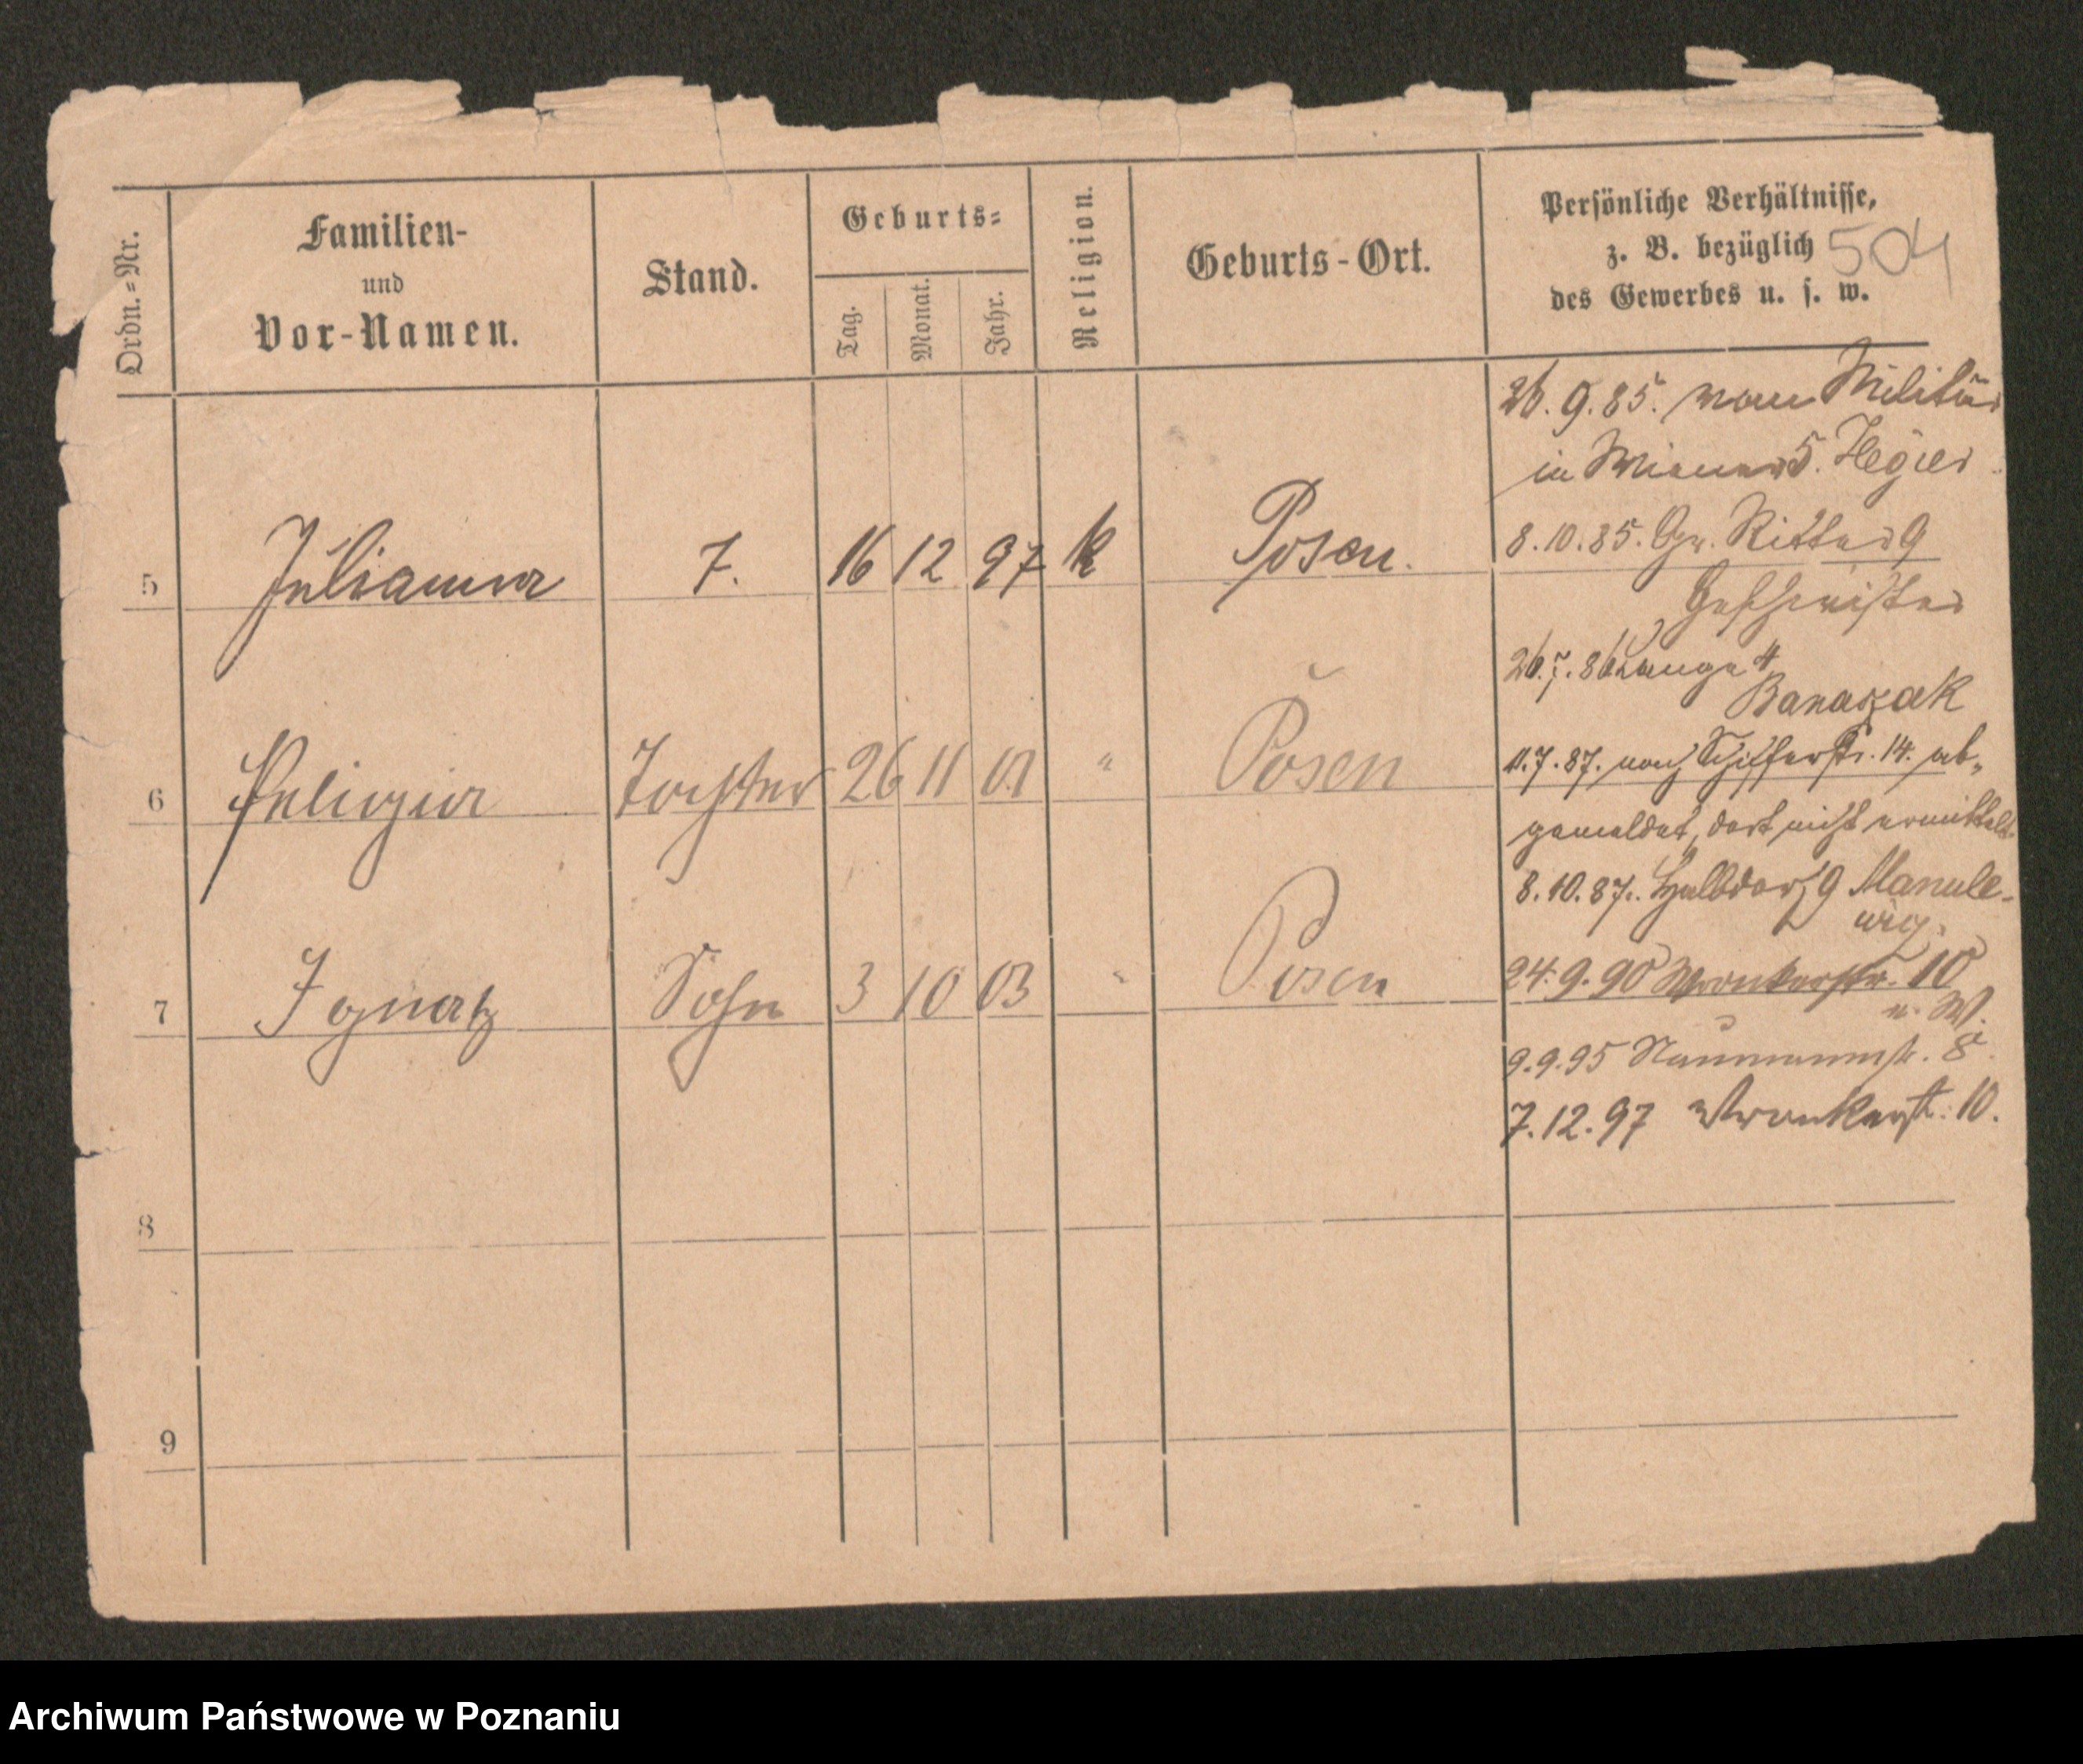 Ordn.=Nr.
Familien-
und
Vor-Namen.
Stand.
Geburts=
Tag.
Monat.
Jahr.
Religion.
Geburts-Ort.
Persönliche Verhältnisse,
z. B. bezüglich
des Gewerbes u. s. w.
504
5 Julianna T. 16 12 97 k Posen.
6 Pelagia Tochter 26 11 01 " Posen
7 Ignatz Sohn 3 10 03 " Posen
8
9
26.9.85. vom Militär
in 5.
8.10.85. Gr. Ritter 9
Geschwister
26.7.86 Lange 4
Banaszak
11.7.87. nach Schifferstr. 14. ab-
gemeldet, dort nicht ermittelt.
8.10.87. Halbdorf 9 Manule-
wicz.
24.9.90 Wronkerstr. 10
n. W.
9.9.95 Naumannstr. 8.
7.12.97 Wronkerst. 10.
Archiwum Państwowe w Poznaniu